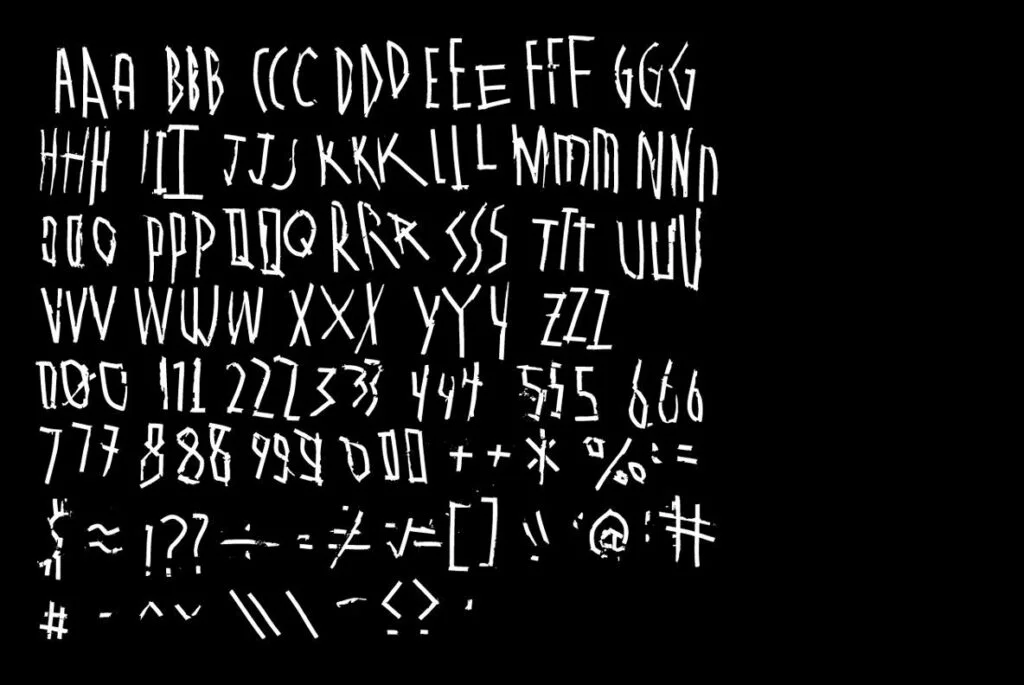 AAA BBB CCC DDD EEE FFF GGG
HHH III JJJ KKK LLL MMM NNN
OOO PPP QQQ RRR SSS TTT UUU
VVV WWW XXX YYY ZZZ
000 111 222 333 444 555 666
777 888 999 000 + + * % : =
≈ ! ? ? ÷ = ≠ √ = [ ] \\ @ : #
# - ^ \\ \ - < >